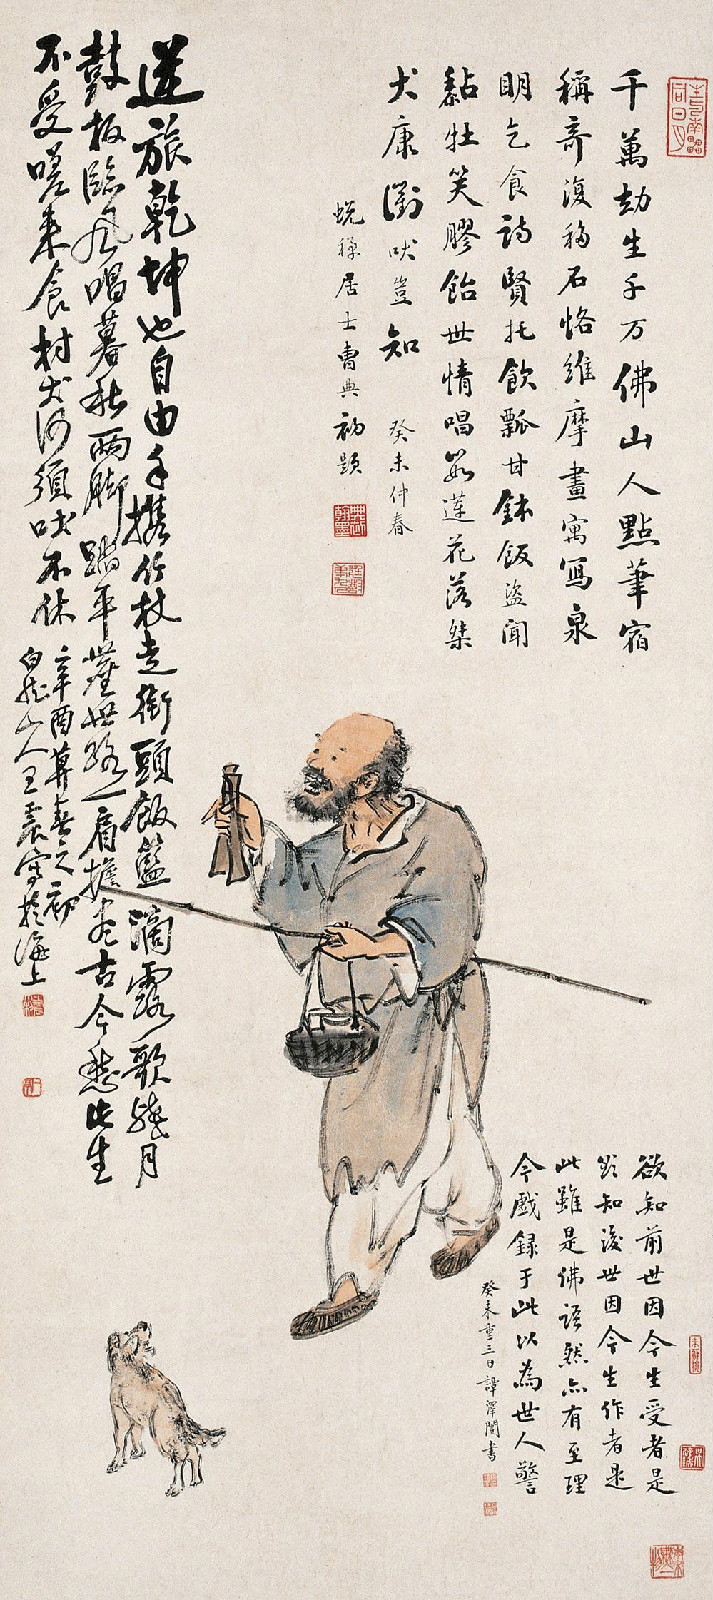 千萬劫生千万佛山人點筆宿
稱奇復稿石恪維摩畫寓寫泉
明乞食詩賢托飲瓢甘鉢飯盜聞
黏牡笑膠飴世情唱蓮花落桀
犬康衢吠豈知 癸未仲春
居士曹典初題
逆旅乾坤也自由手攜竹杖走街頭飯籃滴露歌殘月
鼓板臨風唱暮秋兩脚踏平塵世路一肩擔盡古今愁此生
不受嗟来食村犬何須吠不休
辛酉莫春之初
白龍山人王震寫於海上
欲知前世因今生受者是
欲知後世因今生作者是
此雖是佛語然亦有至理
今戲録于此以為世人警
癸未重三日譚澤闓書